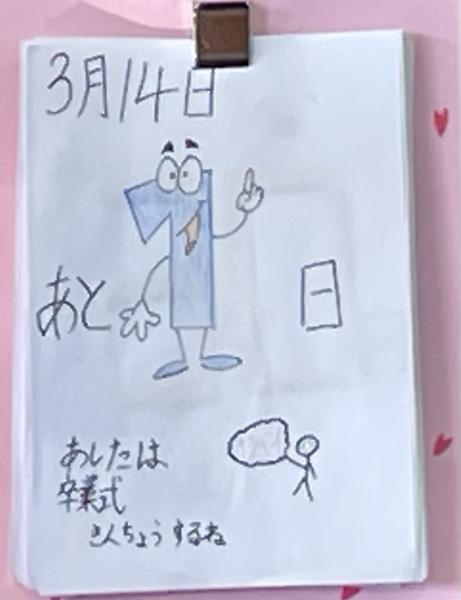 3月14日
あと1日
あしたは
卒業式
きんちょうするね